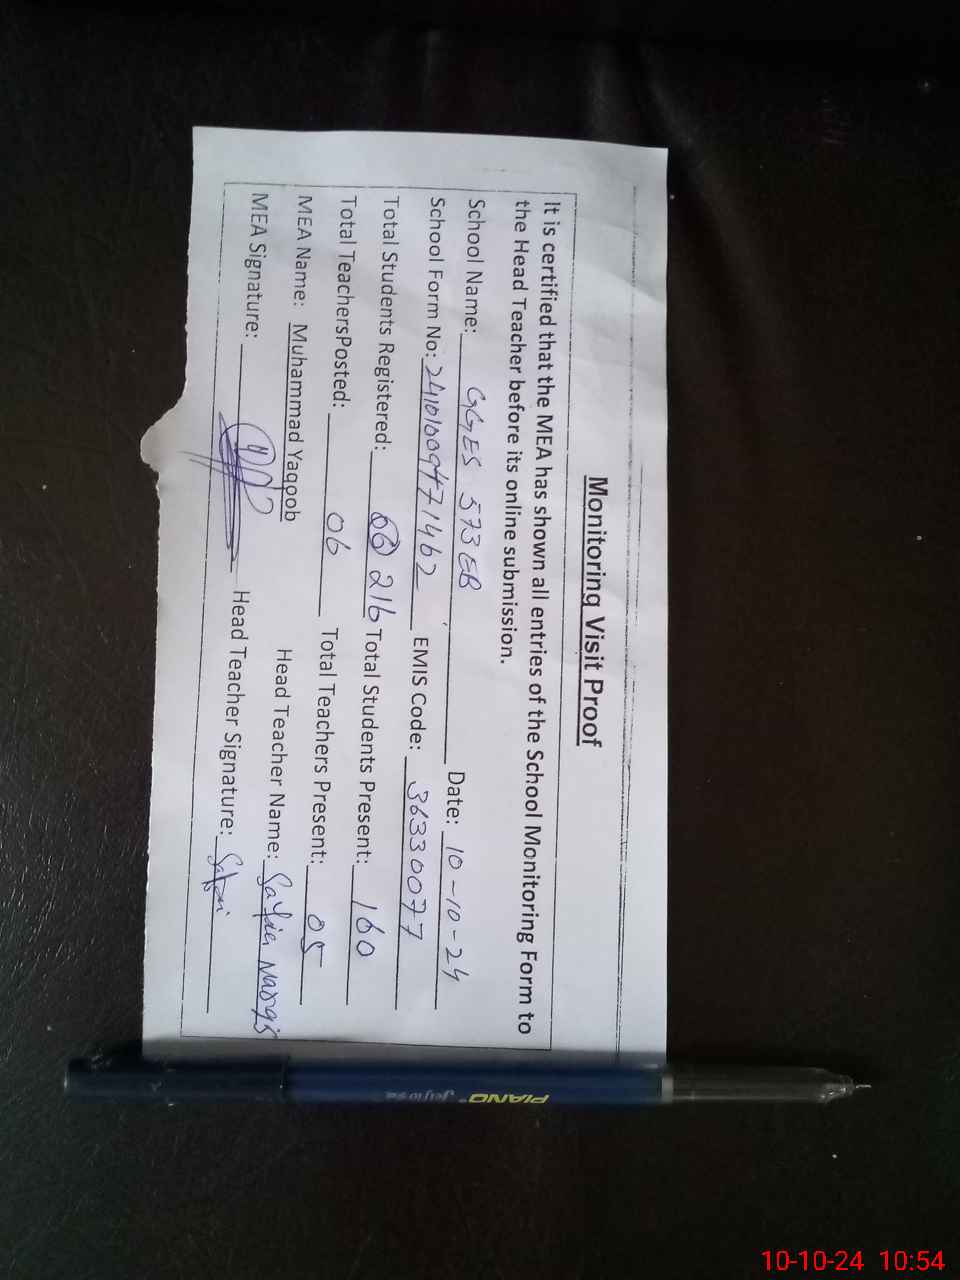 Monitoring Visit Proof
It is certified that the MEA has shown all entries of the School Monitoring Form to
the Head Teacher before its online submission.
School Name: GGES 573 EB Date: 10-10-24
School Form No: 24101009471462 EMIS Code: 36330077
Total Students Registered: 06 216 Total Students Present: 160
Total TeachersPosted: 06 Total Teachers Present: 05
MEA Name: Muhammad Yaqoob Head Teacher Name: Nargis
MEA Signature: Head Teacher Signature:
PIANO
10-10-24 10:54